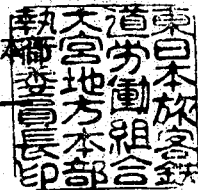 東日本旅客鉄
道労働組合
大宮地方本部
執行委員長印